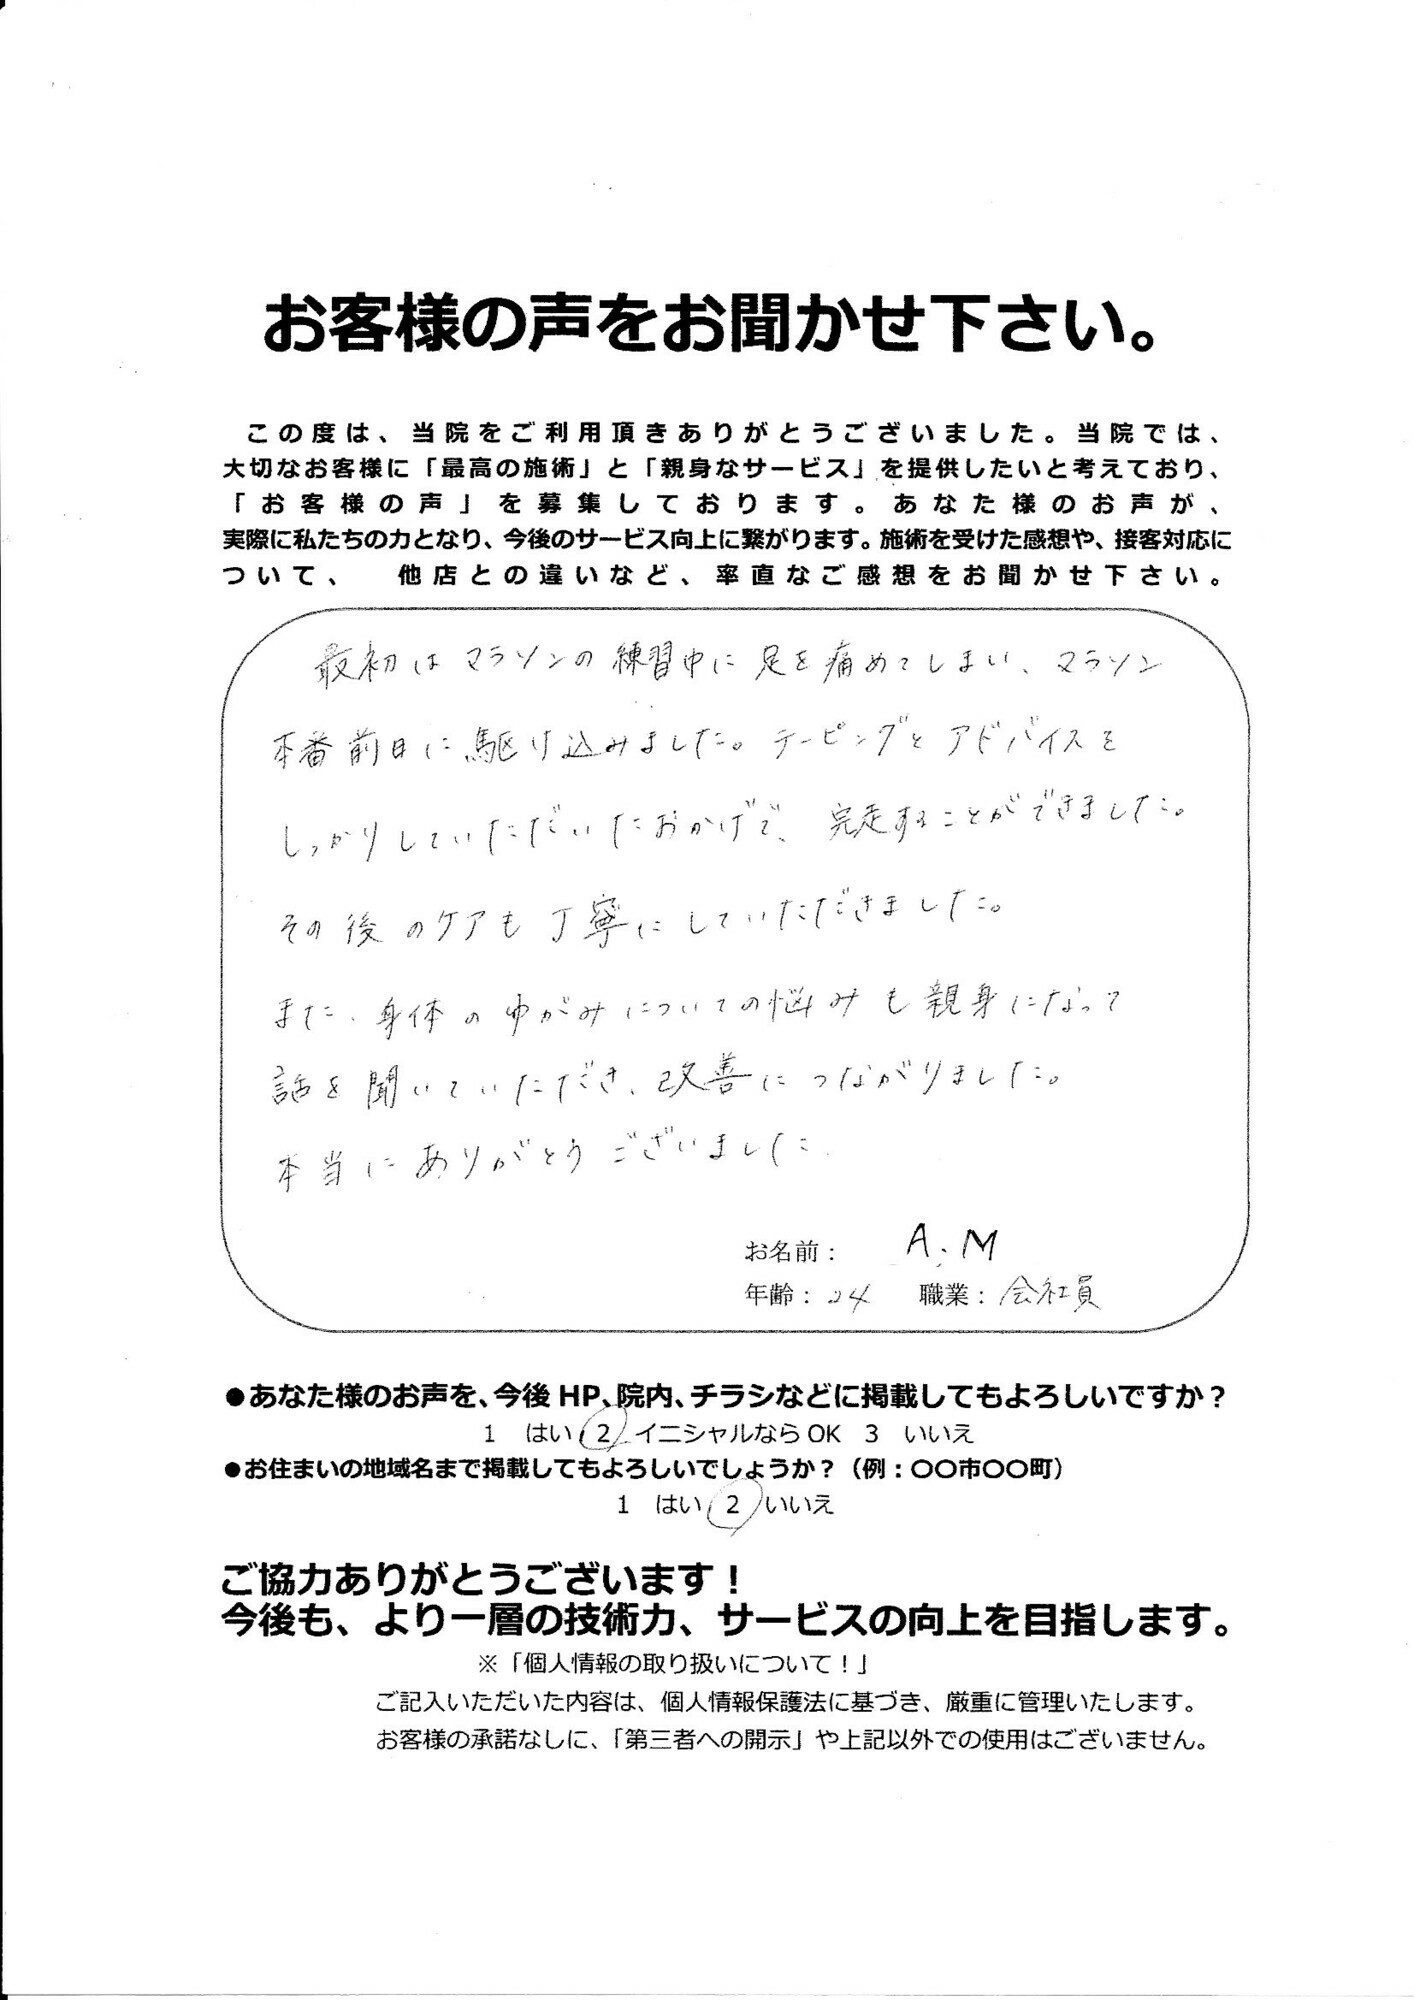 お客様の声をお聞かせ下さい。
この度は、当院をご利用頂きありがとうございました。当院では、
大切なお客様に「最高の施術」と「親身なサービス」を提供したいと考えており、
「お客様の声」を募集しております。あなた様のお声が、
実際に私たちの力となり、今後のサービス向上に繋がります。施術を受けた感想や、接客対応に
ついて、　他店との違いなど、率直なご感想をお聞かせ下さい。
最初はマラソンの練習中に足を痛めてしまい、マラソン
本番前日に駆け込みました。テーピングとアドバイスを
しっかりしていただいたおかげで、完走することができました。
その後のケアも丁寧にしていただきました。
また、身体のゆがみについての悩みも親身になって
話を聞いていただき、改善につながりました。
本当にありがとうございました.
お名前： A.M
年齢：24　職業：会社員
●あなた様のお声を、今後 HP、院内、チラシなどに掲載してもよろしいですか？
1　はい　2　イニシャルなら OK　3　いいえ
●お住まいの地域名まで掲載してもよろしいでしょうか？（例：〇〇市〇〇町）
1　はい　2　いいえ
ご協力ありがとうございます！
今後も、より一層の技術力、サービスの向上を目指します。
※「個人情報の取り扱いについて！」
ご記入いただいた内容は、個人情報保護法に基づき、厳重に管理いたします。
お客様の承諾なしに、「第三者への開示」や上記以外での使用はございません。